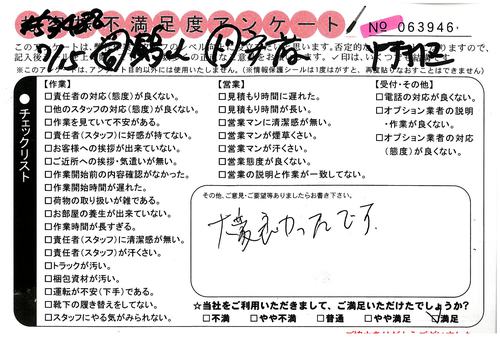 お客様不満足度アンケート
No 063946
※このアンケートは、アンケート目的以外には使用いたしません。（※情報保護シールは1度はがすと、再度貼りなおすことはできません）
●チェックリスト
【作業】
□責任者の対応（態度）が良くない。
□他のスタッフの対応（態度）が良くない。
□作業を見ていて不安がある。
□責任者（スタッフ）に好感が持てない。
□お客様への挨拶が出来ていない。
□ご近所への挨拶・気遣いが無い。
□作業開始前の内容確認がなかった。
□作業開始時間が遅れた。
□荷物の取り扱いが雑である。
□お部屋の養生が出来ていない。
□作業時間が長すぎる。
□責任者（スタッフ）に清潔感が無い。
□責任者（スタッフ）が汗さい。
□トラックが汚い。
□梱包資材が汚い。
□運転が不安（下手）である。
□靴下の履き替えをしてない。
□スタッフにやる気がみられない。
【営業】
□見積もり時間に遅れた。
□見積もり時間が長い。
□営業マンに清潔感が無い。
□営業マンが煙草くさい。
□営業マンが汗さい。
□営業態度が良くない。
□営業の説明と作業が一致してない。
【受付・その他】
□電話の対応が良くない。
□オプション業者の説明
・作業が良くない。
□オプション業者の対応
（態度）が良くない。
その他、ご意見・ご要望等ありましたらお書き下さい。
大変良かったです。
☆当社をご利用いただきまして、ご満足いただけたでしょうか？
□不満 □やや不満 □普通 □やや満足 ☑満足